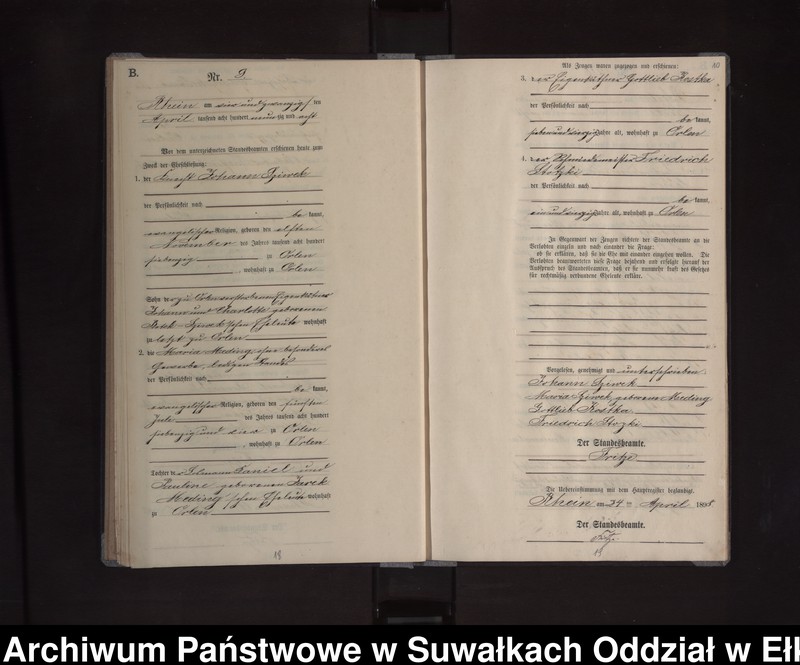 B.
Nr. 9.
Rhein am vier und zwanzig ten
April tausend acht hundert neunzig und acht
Vor dem unterzeichneten Standesbeamten erschienen heute zum
Zweck der Eheschließung:
1. der Knecht Johann Sziwek
der Persönlichkeit nach
be kannt,
evangelischer Religion, geboren den elften
November des Jahres tausend acht hundert
siebenzig zu Orlen
, wohnhaft zu Orlen
Sohn der zu Orlen verstorbenen Eigenkäthner
Johann und Charlotte geborenen
schen Eheleute wohnhaft
zu letzt zu Orlen
2. die Maria Meding ohne besonderes
Gewerbe, ledigen Standes
der Persönlichkeit nach
be kannt,
evangelischer Religion, geboren den fünften
Julr des Jahres tausend acht hundert
siebenzig und vier zu Orlen
, wohnhaft zu Orlen
Tochter der Daniel und
Pauline geborenen
Meding schen Eheleute wohnhaft
zu Orlen
18
Als Zeugen waren zugezogen und erschienen:
3. der Eigenkäthner Gottlieb Kostka
der Persönlichkeit nach
be kannt,
siebenundvierzig Jahre alt, wohnhaft zu Orlen
4. der Schmiedemeister Friedrich
Stotzki
der Persönlichkeit nach
be kannt,
einundvierzig Jahre alt, wohnhaft zu Orlen
In Gegenwart der Zeugen richtete der Standesbeamte an die
Verlobten einzeln und nach einander die Frage:
ob sie erklären, daß sie die Ehe mit einander eingehen wollen. Die
Verlobten beantworteten diese Frage bejahend und erfolgte hierauf der
Ausspruch des Standesbeamten, daß er sie nunmehr kraft des Gesetzes
für rechtmäßig verbundene Eheleute erkläre.
Vorgelesen, genehmigt und unterschrieben
Johann Sziwek
Maria Sziwek geborene Meding
Gottlieb Kostka
Friedrich Stozki
Der Standesbeamte.
Fritze
Die Uebereinstimmung mit dem Hauptregister beglaubigt.
Rhein am 24 ten April 1898
Der Standesbeamte.
Archiwum Państwowe w Suwałkach Oddział w Ełk